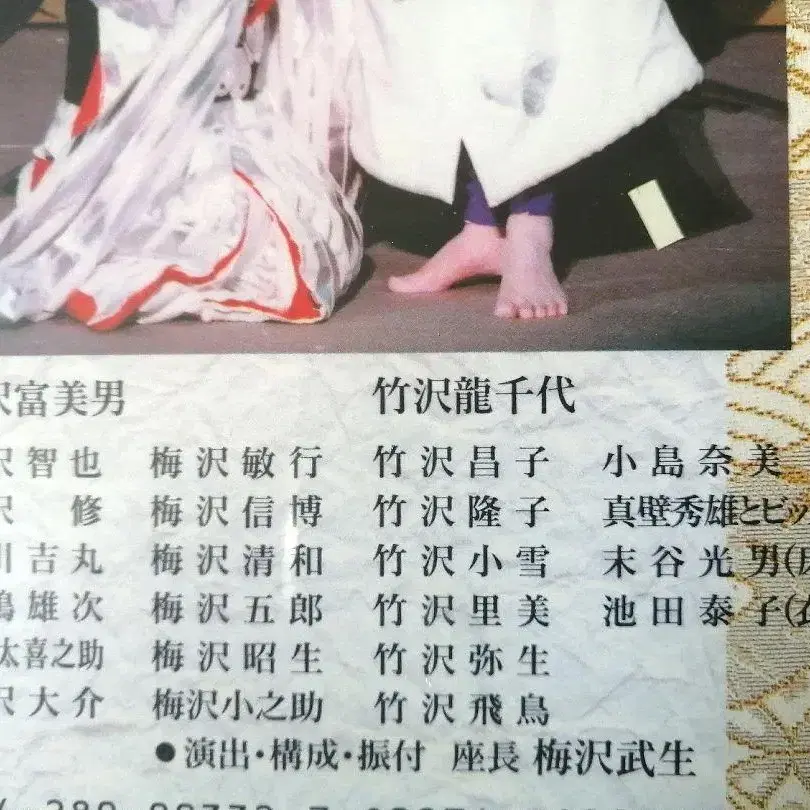 沢富美男 竹沢龍千代
沢智也 梅沢敏行 竹沢昌子 小島奈美
沢 修 梅沢信博 竹沢隆子 真壁秀雄とビッ
川吉丸 梅沢清和 竹沢小雪 末谷光男(
嶋雄次 梅沢五郎 竹沢里美 池田泰子(
太喜之助 梅沢昭生 竹沢弥生
沢大介 梅沢小之助 竹沢飛鳥
●演出・構成・振付 座長 梅沢武生